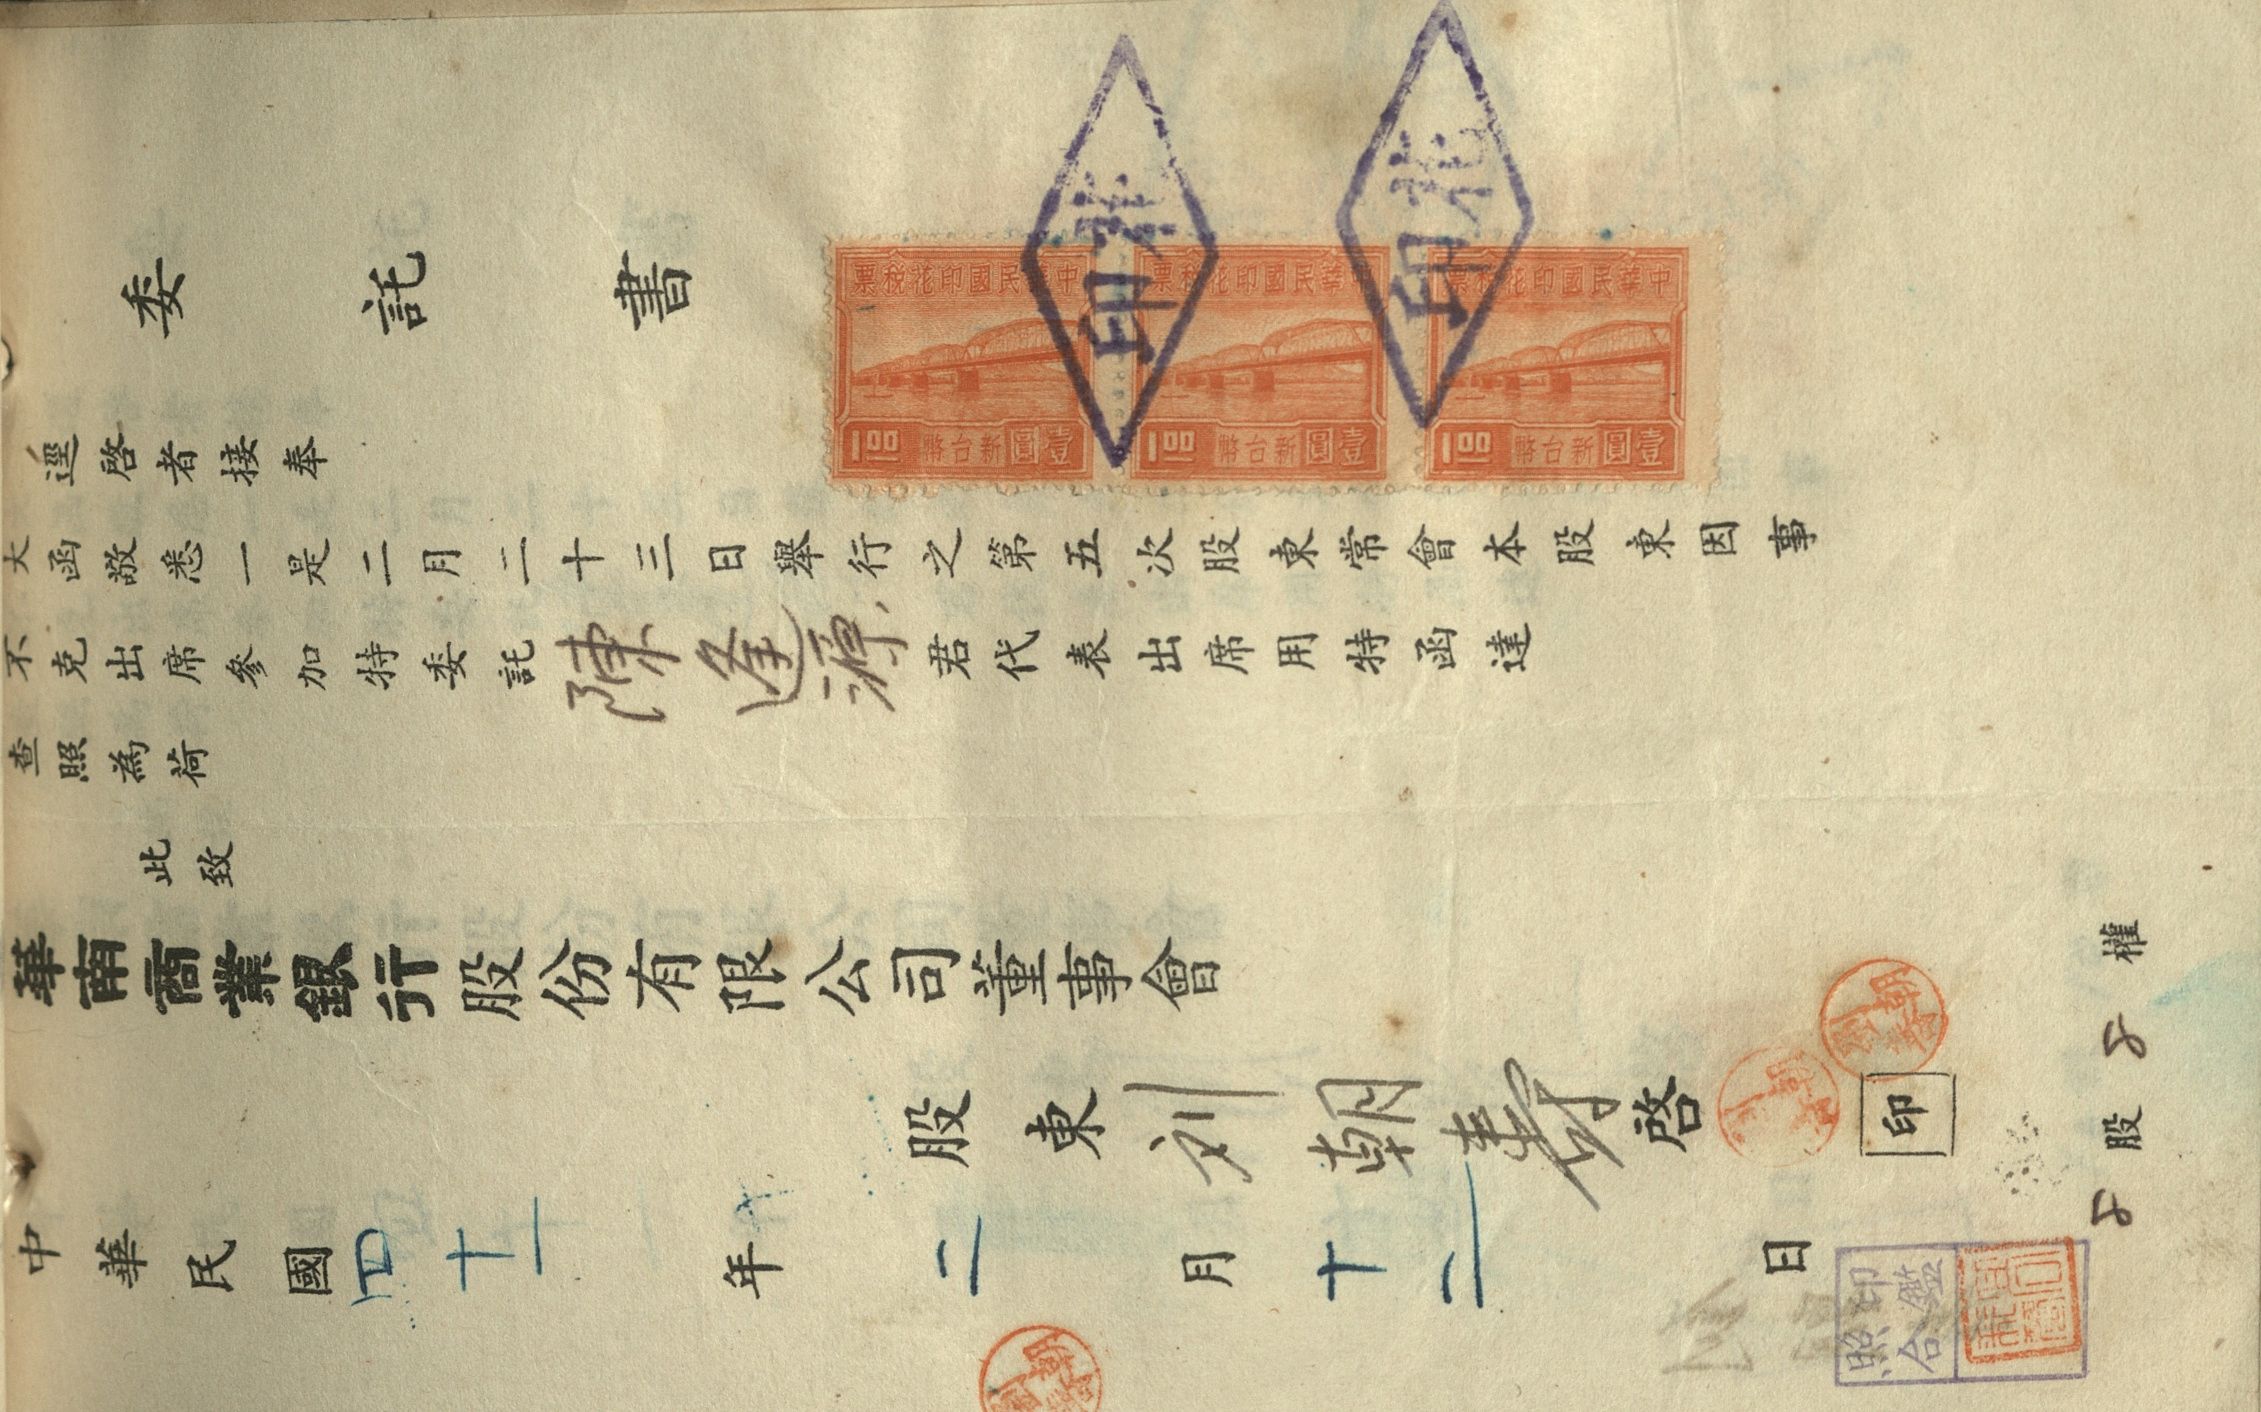 委託書
逕啓者接奉
大函敬悉一是二月二十三日舉行之第五次股東常會本股東因事
不克出席參加特委託陳逢源君代表出席用特函達
查照為荷
此致
華南商業銀行股份有限公司董事會
股東刘朝寿啓
印
中華民國四十一年二月十二日
股 權
中華民國印花稅票
1.00 新台幣壹圓
中華民國印花稅票
1.00 新台幣壹圓
中華民國印花稅票
1.00 新台幣壹圓
印花
印花
印鑑照合